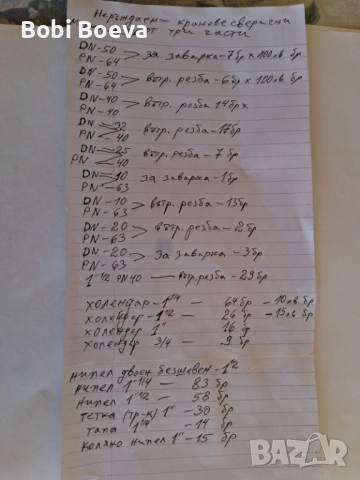 Bobi Beva
Неръждаеми кранове сферични
от три части
DN-50
PN-64 > за заварка - 7бр x 100лв бр
DN-50
PN-64 > вътр. резба - 6бр x 100лв бр
DN-40
PN-40 > вътр. резба 14бр x
DN 32
PN 40 вътр. резба - 17бр
DN 25
PN 40 вътр. резба - 7 бр
DN-10
PN-63 за заварка - 1бр
DN-10
PN-63 > вътр. резба - 13бр
DN-20
PN-63 > вътр. резба - 2бр
DN-20
PN-63 > за заварка - 3бр
1"1/2 PN40 — вътр. резба - 29бр
холендър - 1"1/4 — 64бр - 10лв бр
холендър - 1"1/2 — 26 бр - 15лв бр
холендър 1" 16 бр
холендър 3/4 — 9 бр
нипел двоен безшевен - 1"1/2
нипел 1"1/4 — 83 бр
нипел 1"1/2 — 58 бр
тетка (тр-к) 1" - 30 бр
тапа 1"1/4 — 14 бр
коляно нипел 1" - 15 бр
bazar
БГ